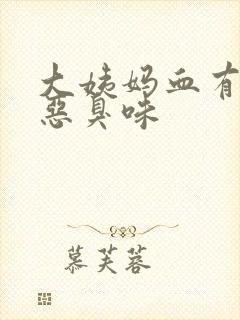 大姨妈血有
恶臭味
慕芙蓉